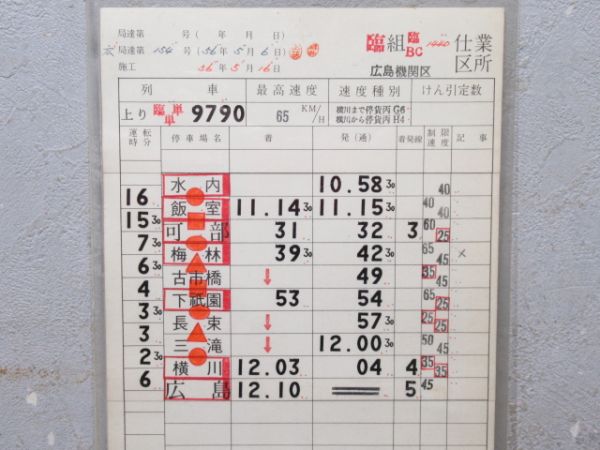 局達第 号 ( 年 月 日)
局達第 154 号 (56年 5月 6日)
施工 56年 5月 16日
臨組 臨 BC 1440 仕業
広島機関区 区所
列車 最高速度 速度種別 けん引定数
上り 臨単 単 9790 65 KM/H 横川まで停貨丙 G6
横川から停貨丙 H4
運転時分 停車場名 着 発(通) 着発線 制限速度 記事
水内 10.58 30 40
16 飯室 11.14 30 11.15 30 40 40
15 30 可部 31 32 3 60 25
7 30 梅林 39 30 42 30 65 45 ×
6 30 古市橋 ↓ 49 35 45
4 下祇園 53 54 65 25
3 長束 ↓ 57 30 25 25
3 三滝 ↓ 12.00 30 50 45
2 30 横川 12.03 04 4 35 35
6 広島 12.10 5 45